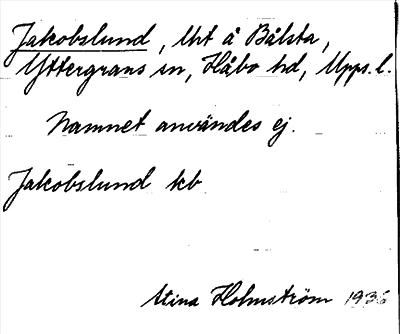 Jakobslund, lht å Bålsta,
Yttergrans sn, Håbo hd, Upps. l.
Namnet användes ej.
Jakobslund kb
Stina Holmström 1936